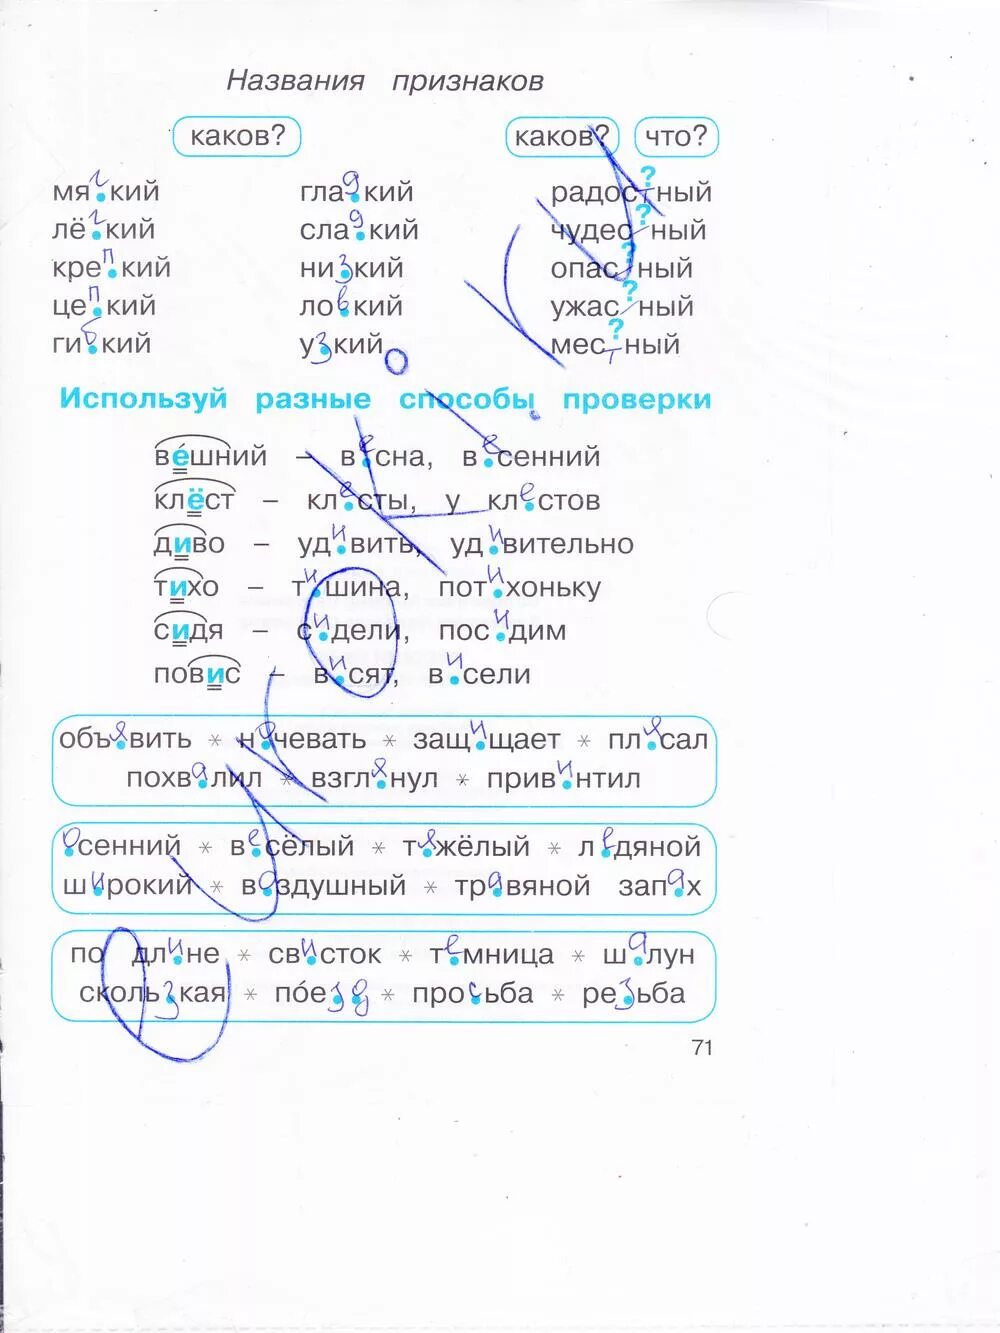 Названия признаков
каков? каков? что?
мягкий гладкий радостный
лёгкий сладкий чудесный
крепкий низкий опасный
цепкий ловкий ужасный
гибкий узкий местный
Используй разные способы проверки
ве́шний – весна, весенний
клёст – клесты, у клестов
диво – удивить, удивительно
тихо – тишина, потихоньку
сидя – сидели, посидим
повис – висят, висели
объявить * ночевать * защищает * плясал
похвалил * взглянул * привинтил
осенний * весёлый * тяжёлый * ледяной
широкий * воздушный * травяной запах
по длине * свисток * темница * шалун
скользкая * по́езд * просьба * резьба
71